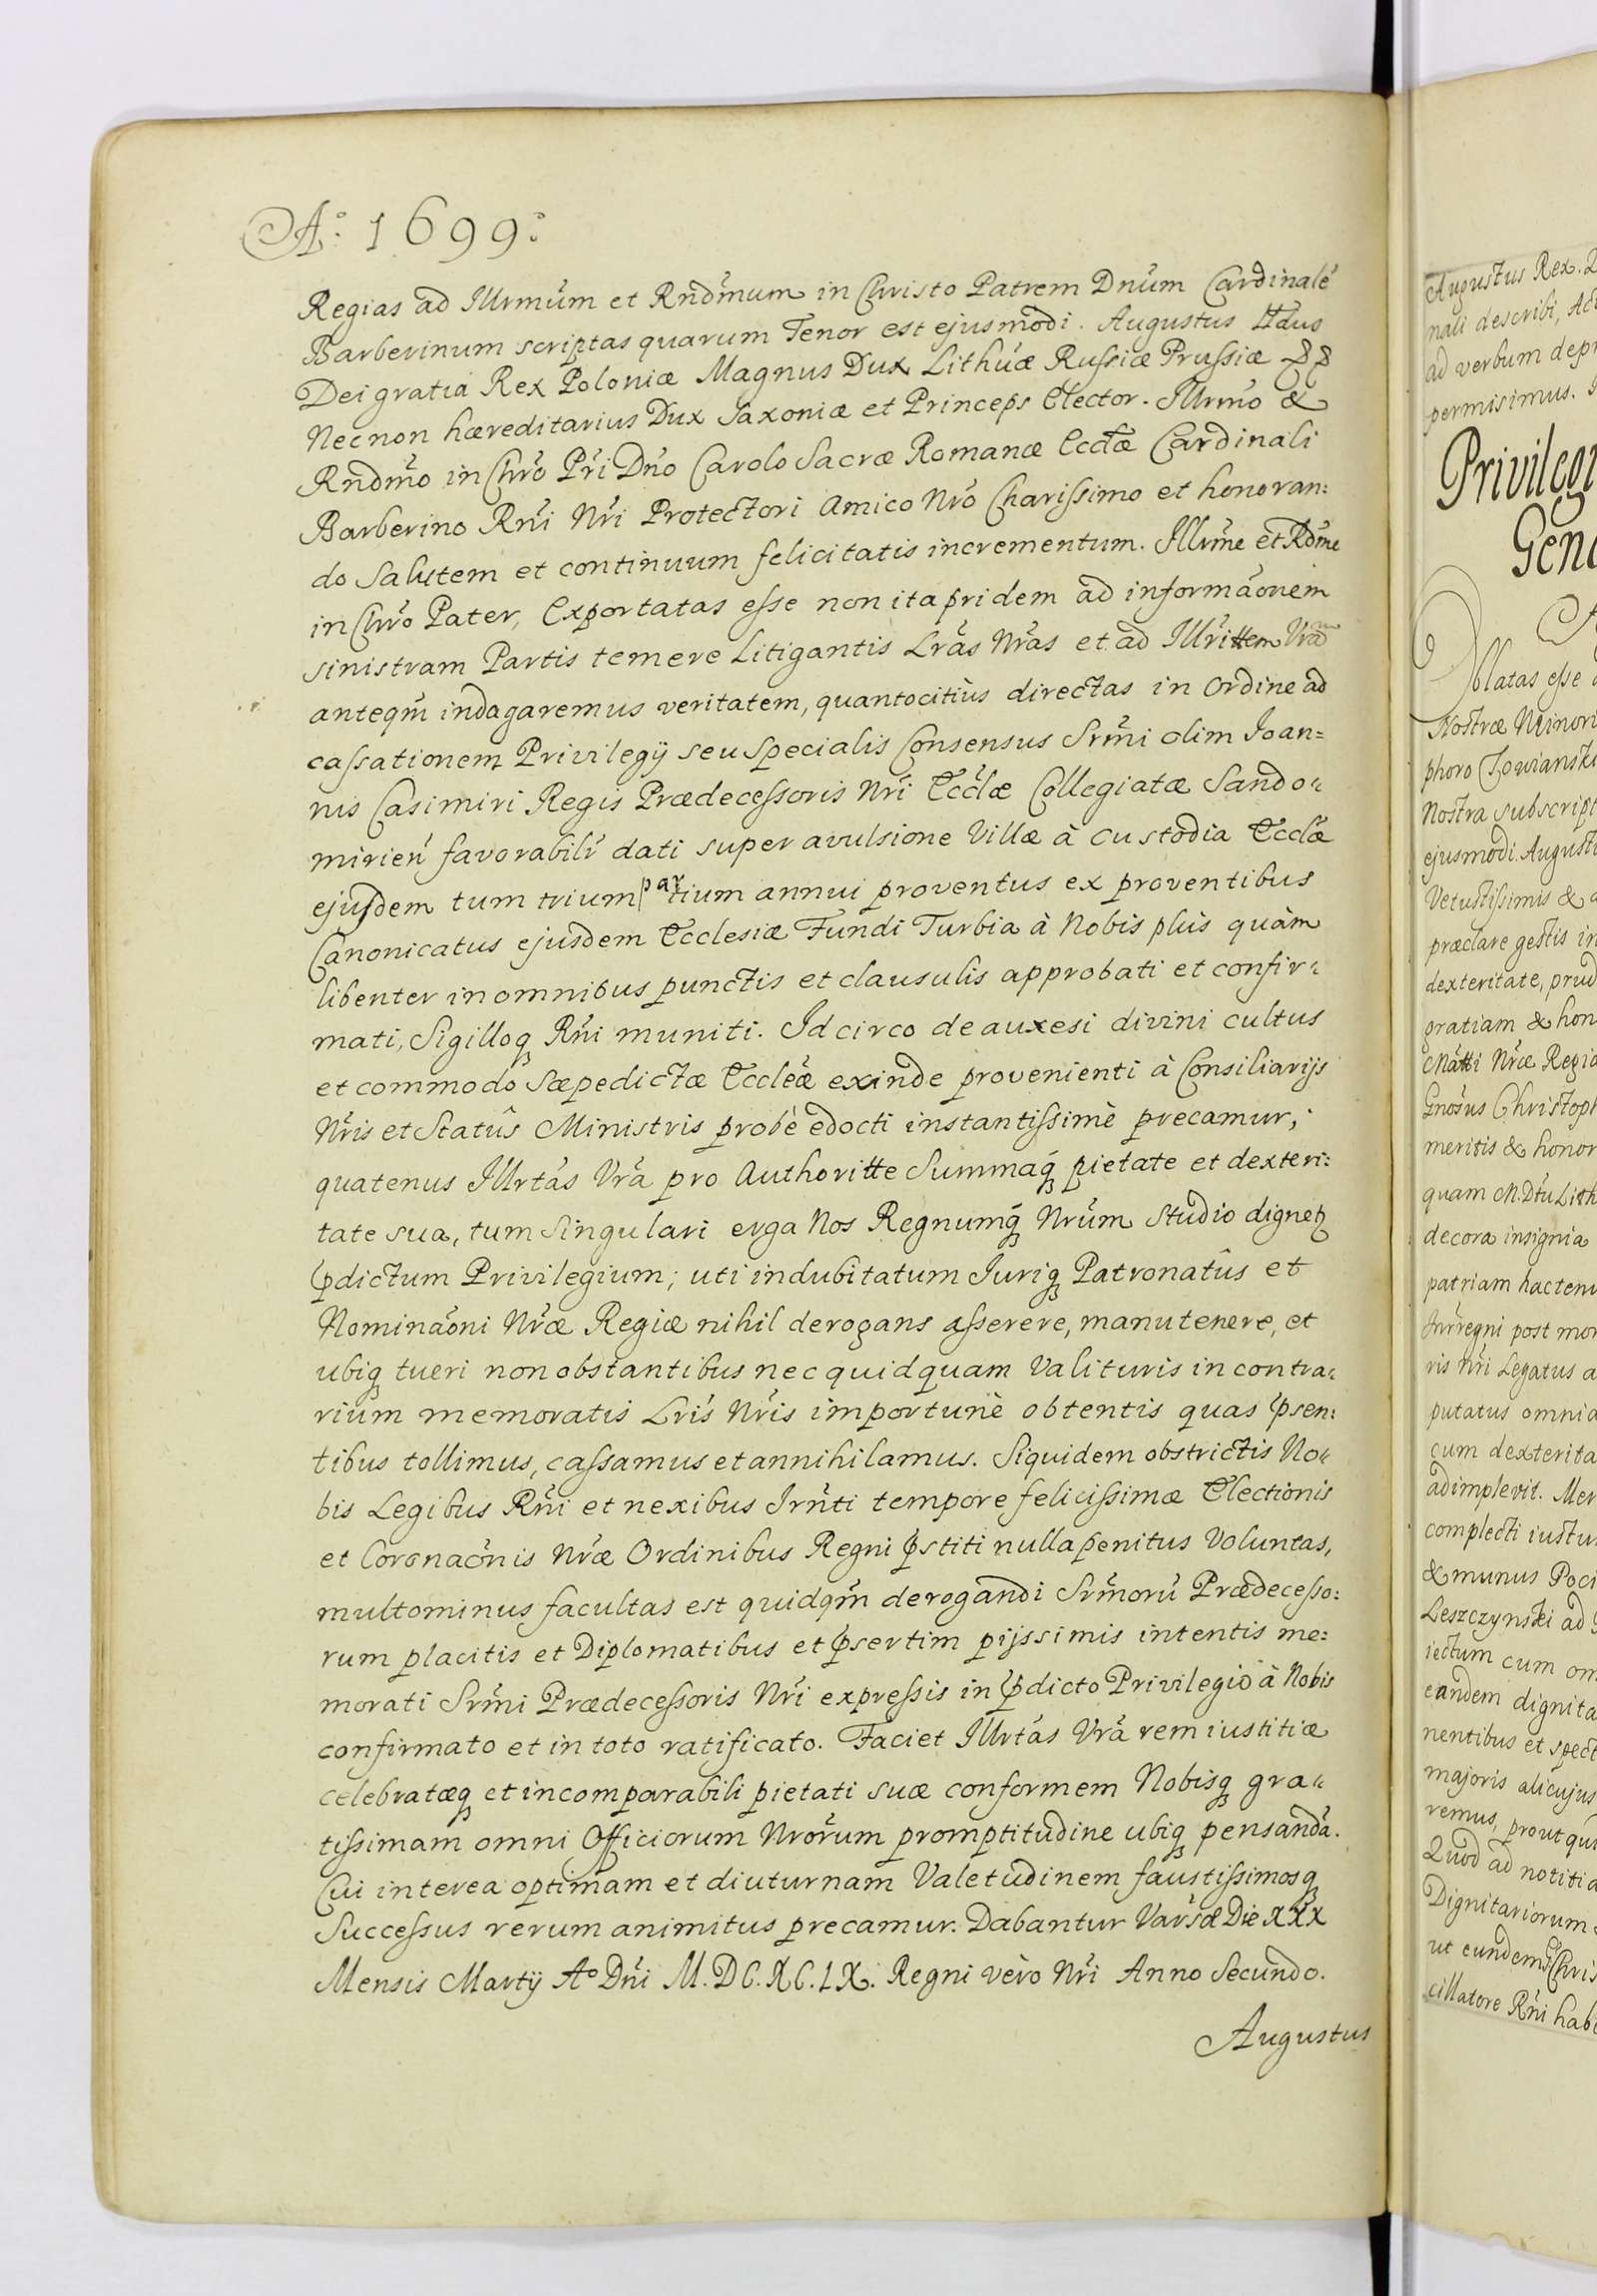 Aº: 1699:
Regias ad Illrmu͂m et Rnd͂mum in Christo Patrem Dnu͂m Cardinale͂
Barberinum scriptas quarum Tenor est ejusmodi. Augustus IIdus
Dei gratia Rex Poloniæ Magnus Dux Lithu͂æ Russiæ Prussiæ &&
Necnon hæreditarius Dux Saxoniæ et Princeps Elector. Illrmo͂ &
Rndm͂o in Chr͂o Pr͂i Dn͂o Carolo Sacræ Romanæ Eccl͂æ Cardinali
Barberino Rn͂i Nr͂i Protectori Amico Nr͂o Charissimo et honoran:
do Salutem et continuum felicitatis incrementum. Illrm͂e et Rdm͂e
in Chr͂o Pater, Exportatas esse non ita pridem ad informa͂onem
sinistram Partis temere Litigantis Lr͂as Nr͂as et ad Illrittem Vra͂m
anteqm͂ indagaremus veritatem, quantocitiùs directas in Ordine ad
cassationem Privilegÿ seu Specialis Consensus Srm͂i olim Joan=
nis Casimiri Regis Prædecessoris Nr͂i Eccl͂æ Collegiatæ Sando=
mirien͂ favorabilr͂ dati super avulsione Villæ à custodia Eccl͂æ
ejusdem tum trium partium annui proventus ex proventibus
Canonicatus ejusdem Ecclesiæ Fundi Turbia à Nobis plus quàm
libenter in omnibus punctis et clausulis approbati et confir=
mati, Sigilloq Rn͂i muniti. Idcirco de auxesi divini cultus
et commodo Sæpedictæ Eccle͂æ exinde provenienti à Consiliarijs
Nr͂is et Statûs Ministris probè edocti instantissimè precamur,
quatenus Illrta͂s Vr͂a pro Authoritte Summaq́ pietate et dexteri:
tate sua, tum Singulari erga Nos Regnumq́ Nru͂m Studio dignetʒ
p͂dictum Privilegium; uti indubitatum Juriq Patronatûs et
Nomina͂oni Nr͂æ Regiæ nihil derogans asserere, manutenere, et
ubiq tueri non obstantibus nec quidquam Valituris in contra=
rium memoratis Lr͂is Nr͂is importunè obtentis quas p͂sen:
tibus tollimus, cassamus et annihilamus. Siquidem obstrictis No=
bis Legibus Rn͂i et nexibus Jrn͂ti tempore felicissimæ Electionis
et Coronao͂nis Nr͂æ Ordinibus Regni p͂stiti nulla penitus Voluntas,
multominus facultas est quidqm͂ derogandi Srm͂oru͂ Prædecesso:
rum placitis et Diplomatibus et p͂sertim pijssimis intentis me:
morati Srm͂i Prædecessoris Nr͂i expressis in p͂dicto Privilegio à Nobis
confirmato et in toto ratificato. Faciet Illrta͂s Vr͂a rem iustitiæ
celebratæq et incomparabili pietati suæ conformem Nobisq gra=
tissimam omni Officiorum Nror͂um promptitudine ubiq pensanda͂.
Cui interea optimam et diuturnam Valetudinem faustissimosq
Successus rerum animitus precamur. Dabantur Vars͂æ Die XXX
Mensis Martÿ Aº Dn͂i M.DC.XC.IX. Regni vèro Nr͂i Anno Secundo.
Augustus
Augustus Rex.
nali describi,
ad verbum
permisimus.
Privileg
Gen
blatas esse
Nostræ Minori
phoro Towianski
Nostra subscript
ejusmodi. Augustu
Vetustissimis &
præclare gestis in
dexteritate, prud
gratiam & hon
Matti Nr͂æ Regia
Gnos͂us Christoph
meritis & honor
quam M.D͂tu Lith
decora insignia
patriam hacten
regni post mor
ris Nr͂i Legatus a
putatus omnia
cum dexterita
adimplevit. Mer
complecti iustu
& munus Poci
Leszczynski ad
iectum cum om
eandem dignita
nentibus et spect
majoris alicujus
remus, prout
Quod ad notitia
Dignitariorum
ut eundem Chris
cillatore Rn͂i hab